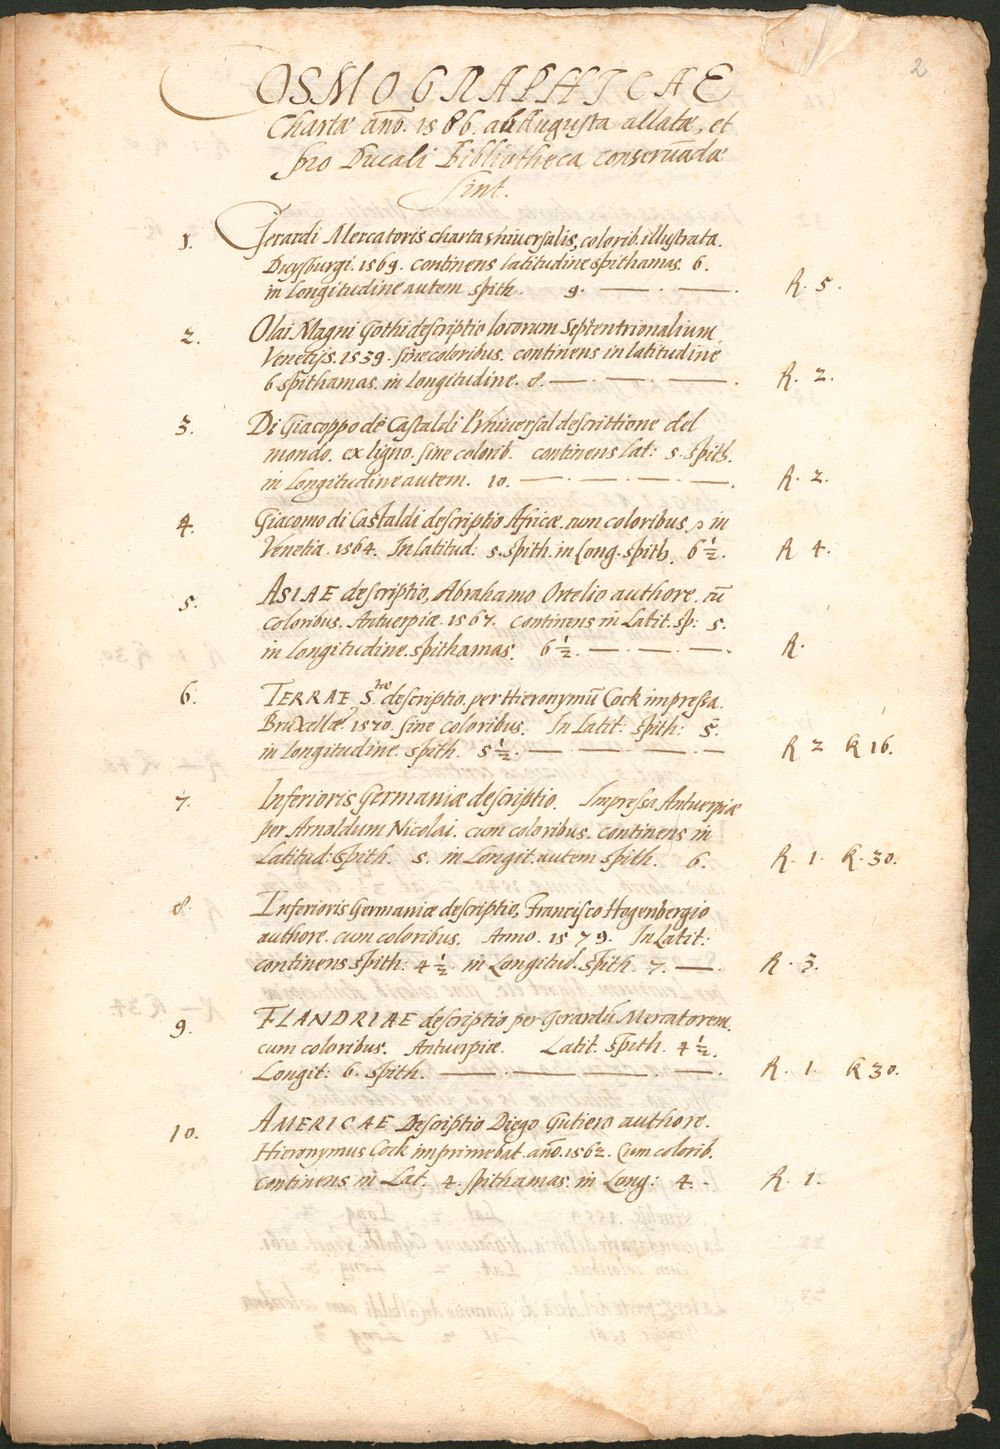 2
COSMOGRAPHICAE
Chartæ anō. 1586. ab Augusta allatæ, et
pro Ducali Bibliotheca conseruādæ
sint.
1. Gerardi Mercatoris charta vniuersalis, colorib. illustrata.
Duysburgi. 1569. continens latitudine spithamas. 6.
in longitudine autem spith. 9. — . — . — . R. 5.
2. Olai Magni Gothi descriptio locorum Septentrionalium
Venetijs. 1539. sine coloribus. continens in latitudine
6 spithamas. in longitudine. 8. — . — . — . R. 2.
3. Di Giacoppo de Castaldi l'vniuersal descrittione del
mondo. ex ligno. sine colorib. continens lat: 5. spith.
in longitudine autem. 10. — . — . — . — . R. 2.
4. Giacomo di Castaldi descriptio Africæ. cum coloribus, in
Venetia. 1564. In latitud: 5. spith. in Long. spith. 6 ½. R 4.
5. ASIAE descriptio, Abrahamo Ortelio authore. cū
coloribus. Antuerpiæ. 1567. continens in Latit. sp: 5.
in longitudine. spithamas. 6 ½. — . — . — . R.
6. TERRAE S.tæ descriptio. per Hieronymū Cock impressa.
Bruxellæ. 1570. sine coloribus. In latit: spith: 5.
in longitudine. spith. 5 ½. — . — . — . — R 2 K 16.
7. Inferioris Germaniæ descriptio. Impressa Antuerpiæ
per Arnoldum Nicolai. cum coloribus. continens in
Latitud: spith. 5. in Longit. autem spith. 6. R. 1. K. 30.
8. Inferioris Germaniæ descriptio, Francisco Hogenbergio
authore. cum coloribus. Anno. 1579. In Latit:
continens spith: 4 ½. in Longitud. spith. 7. — . R. 3.
9. FLANDRIAE descriptio per Gerardū Mercatorem.
cum coloribus. Antuerpiæ. Latit. spith. 4 ½.
Longit: 6. spith. — . — . — . — . R. 1. K 30.
10. AMERICAE Descriptio Diego Gutiero authore.
Hieronymus Cock imprimebat. añō. 1562. Cum colorib.
continens in Lat. 4. spithamas. in Long: 4. - R. 1.